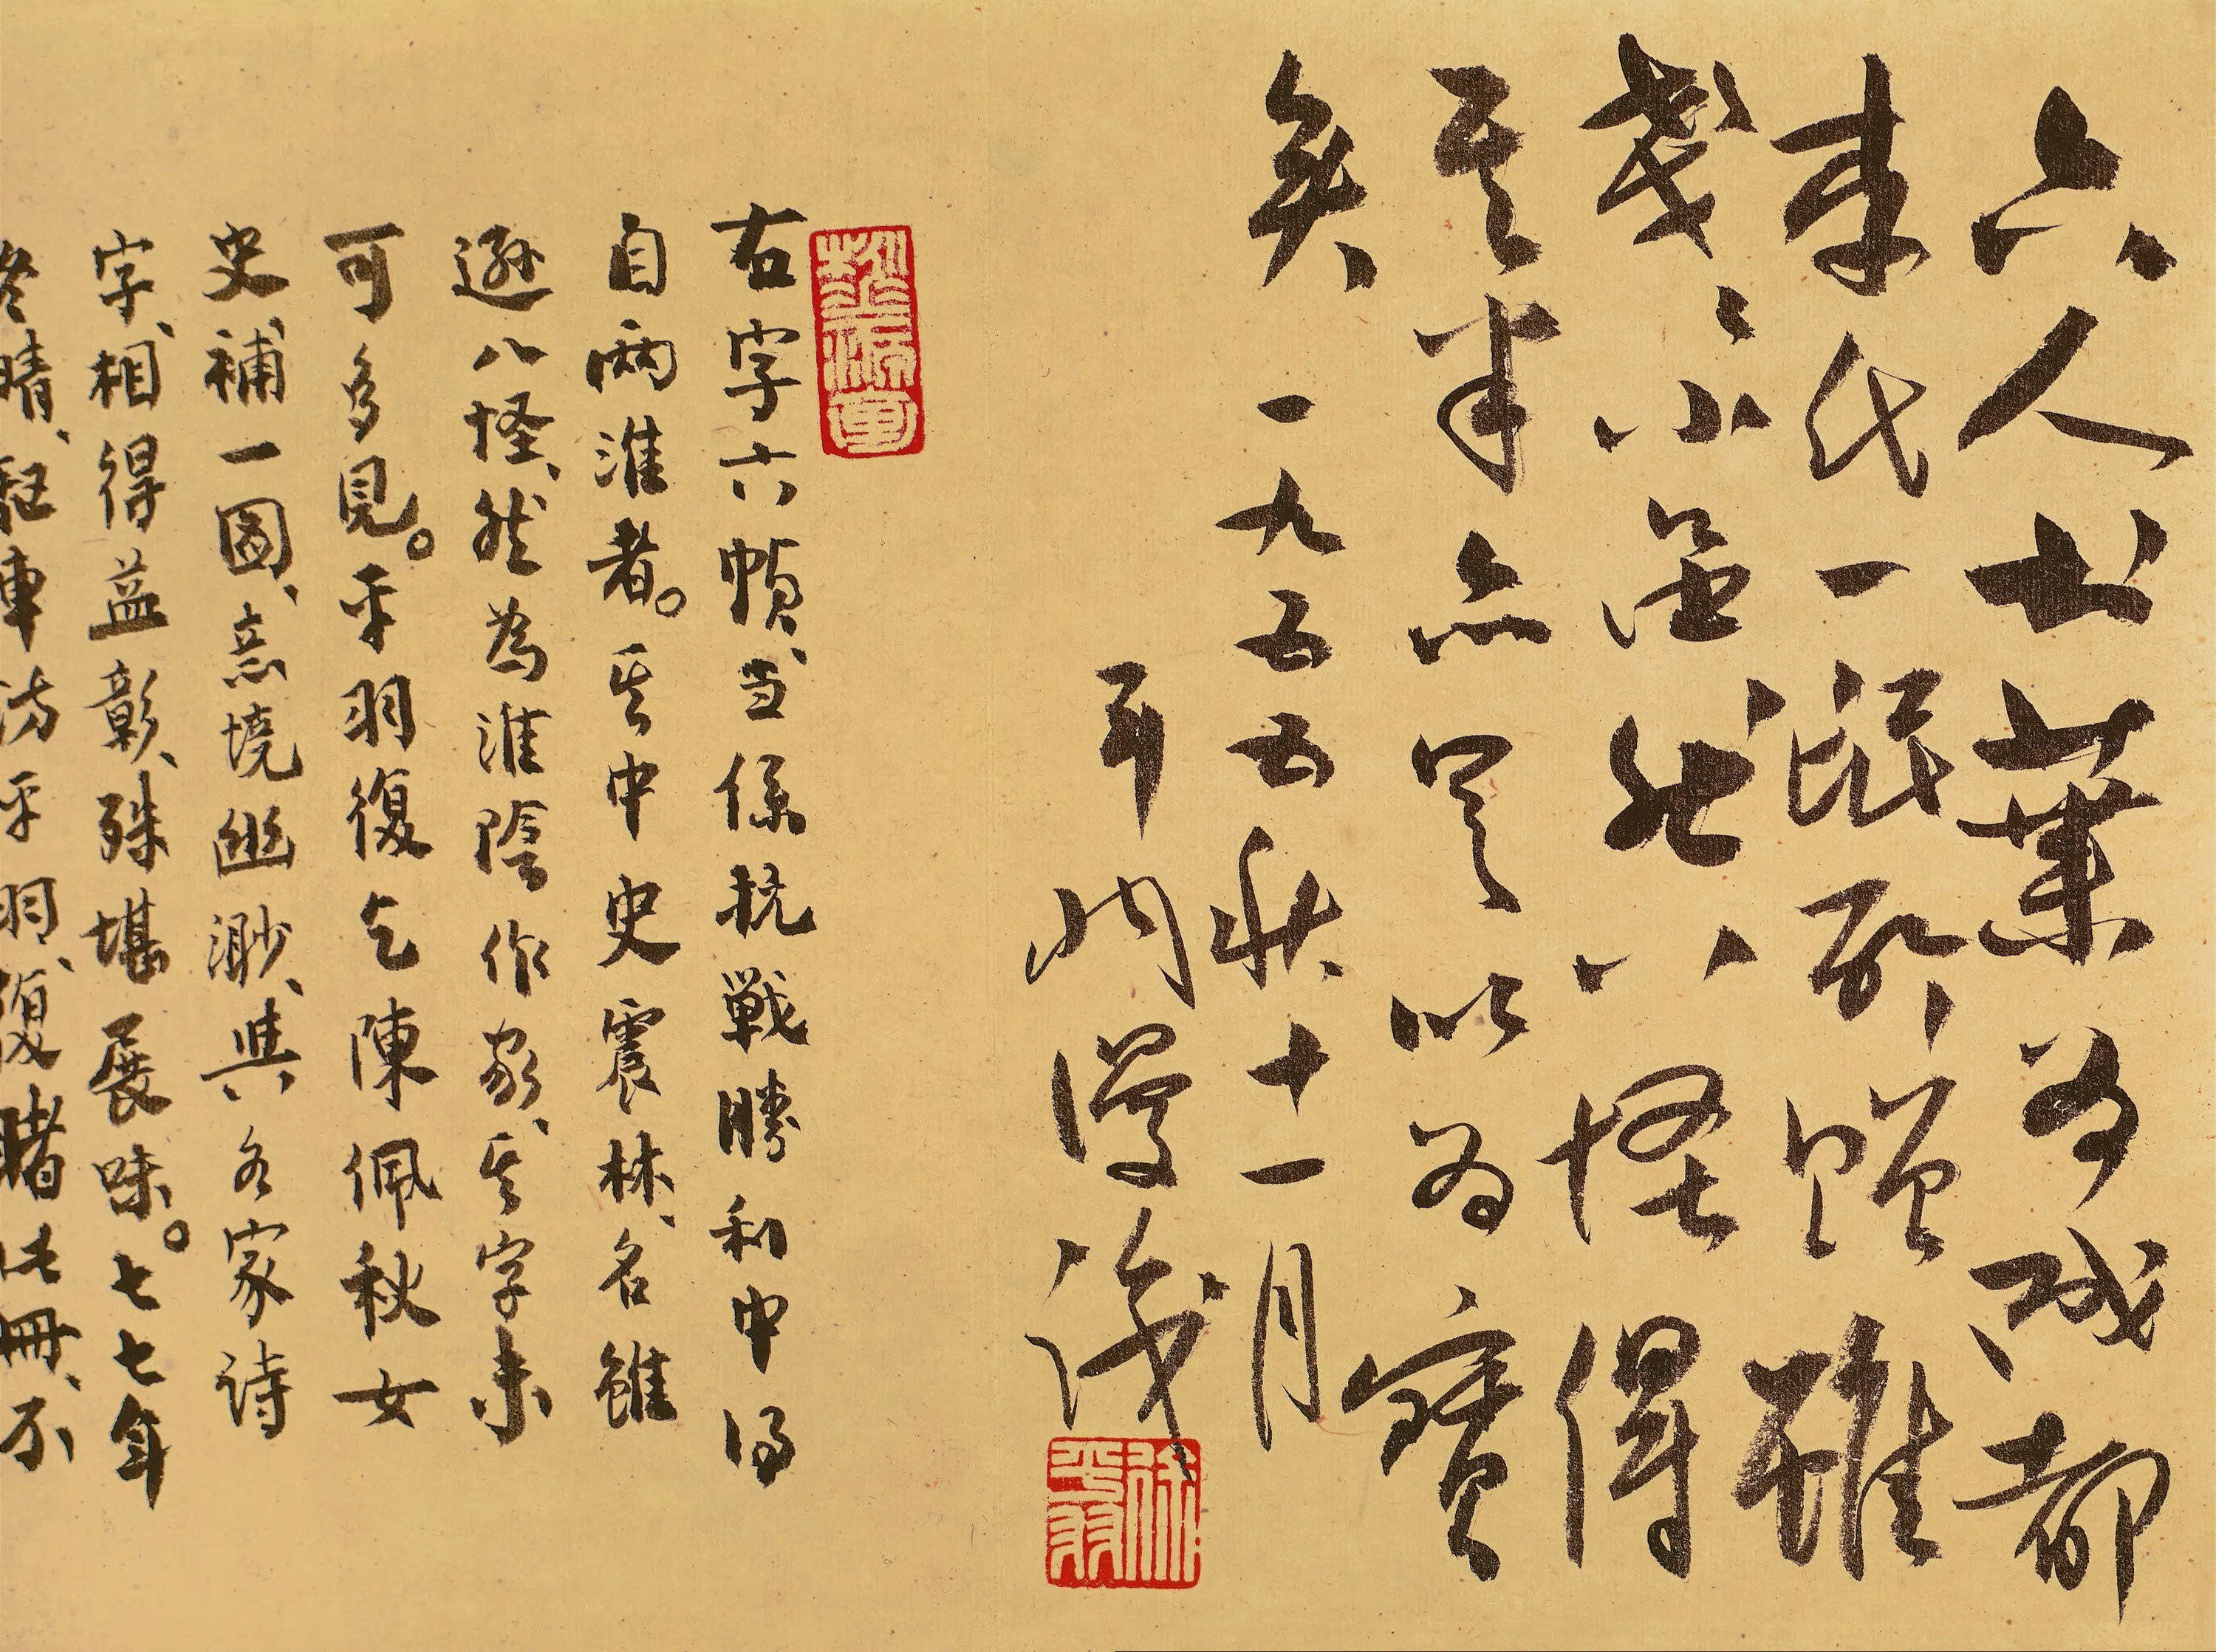 六人书葉為成都
李氏一氓所贈雖
戔々小然八怪得
其半亦足以為寶
矣 一九五五秋十一月
平羽漫識
徐平羽
右字六幀、当係抗戰勝利中得
自兩淮者。其中史震林、名雖
遜八怪、然為淮陰作家、其字未
可多見。平羽復乞陳佩秋女
史補一圖、意境幽渺、與各家詩
字、相得益彰、殊堪展味。七七年
冬晴、驅車訪平羽、復睹此冊、不